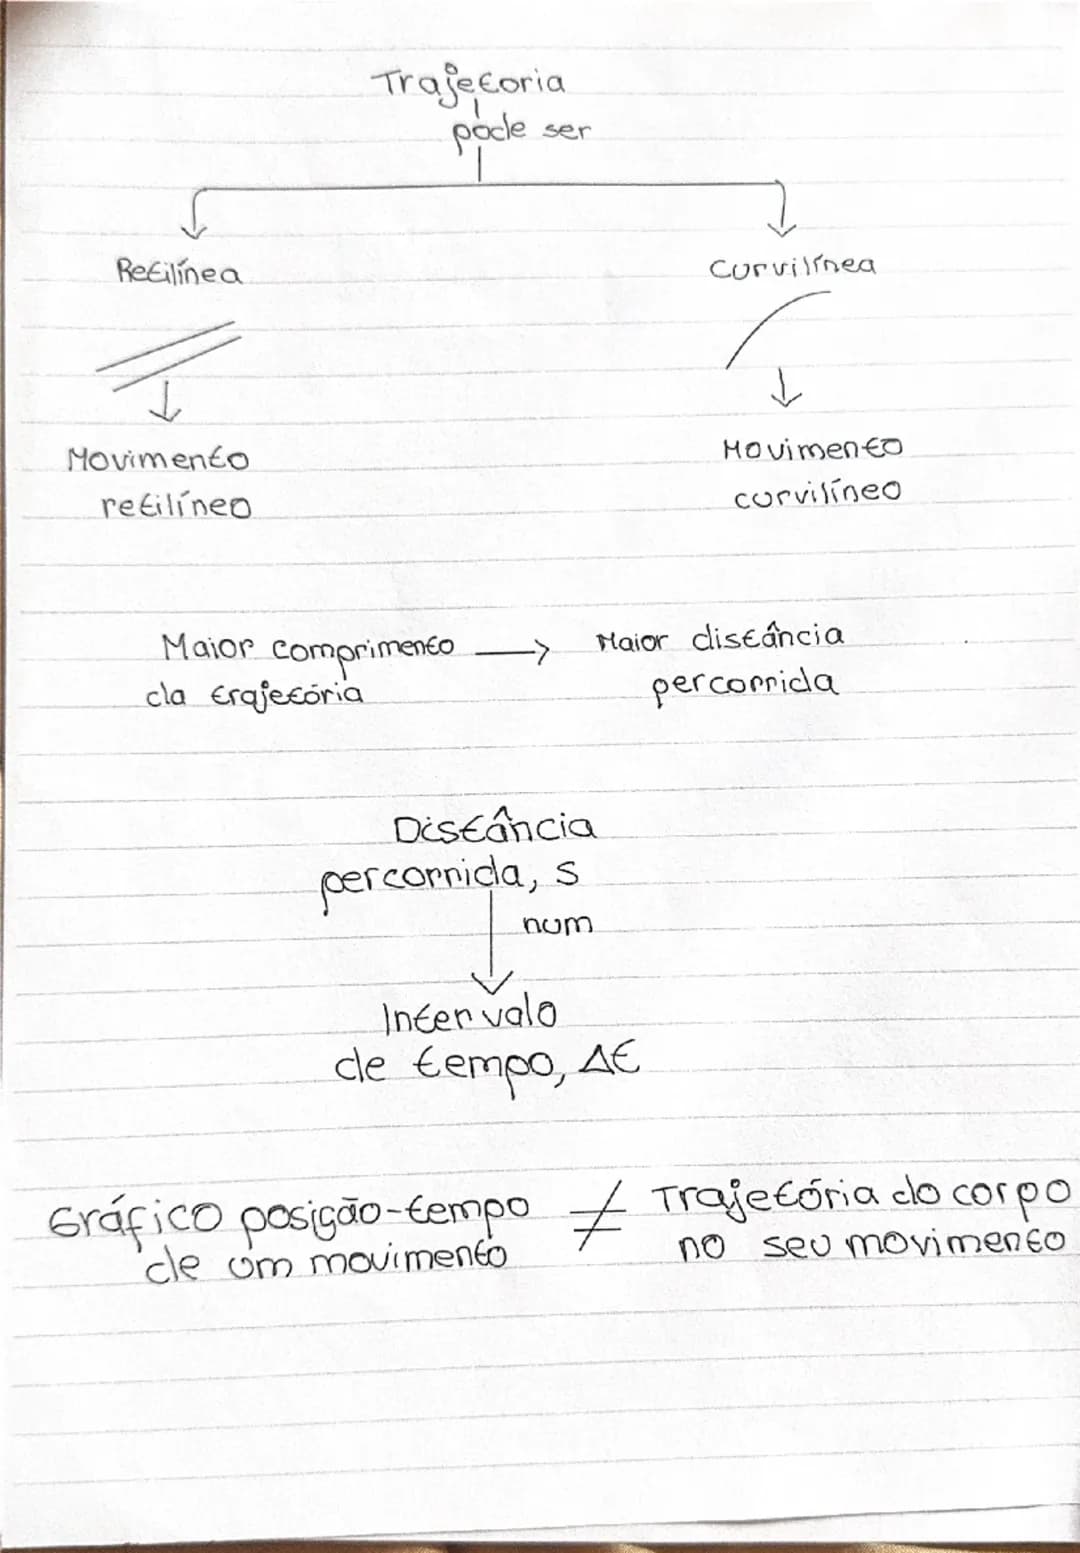 Trajetoria
pode ser
Retilínea
Curvilínea
Movimento
retilíneo
Movimento
curvilíneo
Maior comprimento → Maior distância
da trajetória percorrida
Distância
percorrida, s
num
Intervalo
de tempo, Δt
Gráfico posição-tempo ≠ Trajetória do corpo
de um movimento no seu movimento